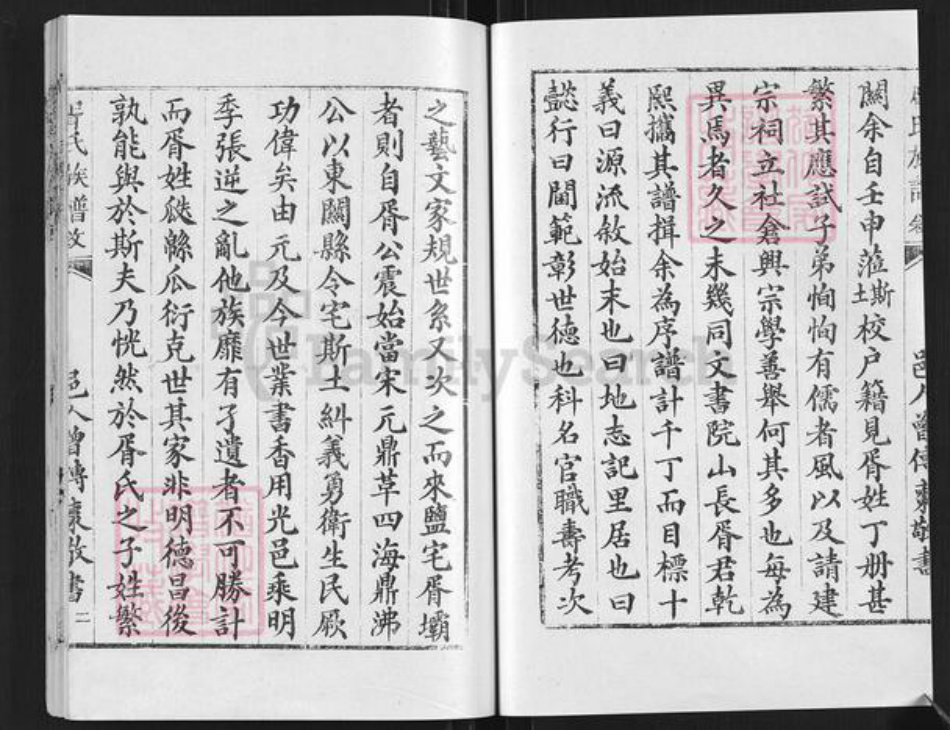 關余自壬申蒞斯土校戶籍見胥姓丁册甚
繁其應試子弟恂恂有儒者風以及請建
宗祠立社倉興宗學善舉何其多也每為
異焉者久之未幾同文書院山長胥君乾
熙攜其譜揖余為序譜計千丁而目標十
義曰源流敘始末也曰地志記里居也曰
懿行曰閫範彰世德也科名官職壽考次
之藝文家規世系又次之而來鹽宅胥壩
者則自胥公震始當宋元鼎革四海鼎沸
公以東關縣令宅斯土糾義勇衛生民厥
功偉矣由元及今世業書香用光邑乘明
季張逆之亂他族靡有孑遺者不可勝計
而胥姓瓞緜瓜衍克世其家非明德昌後
孰能與於斯夫乃恍然於胥氏之子姓繁
氏族譜
邑人曾傳
敬書
二
FamilySearch